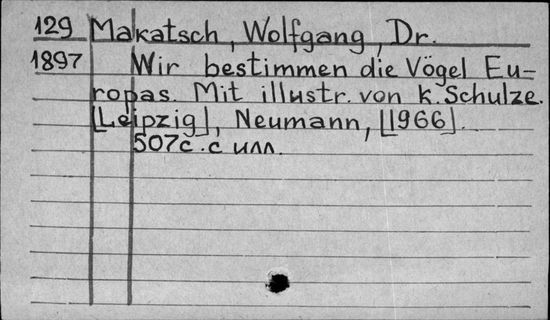 129 Makatsch, Wolfgang, Dr.
1897 Wir bestimmen die Vögel Eu-
ropas. Mit illustr. von K. Schulze.
[Leipzig], Neumann, [1966].
507с. с илл.